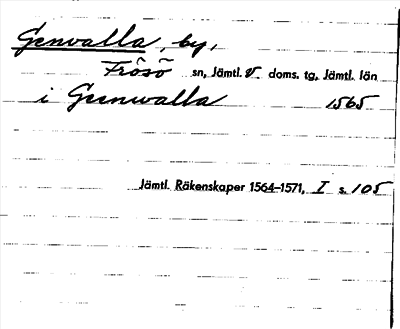 Genvalla, by,
Frösö sn, Jämtl. V doms. tg, Jämtl. län
i Geenwalla 1565
Jämtl. Räkenskaper 1564-1571, I s. 105